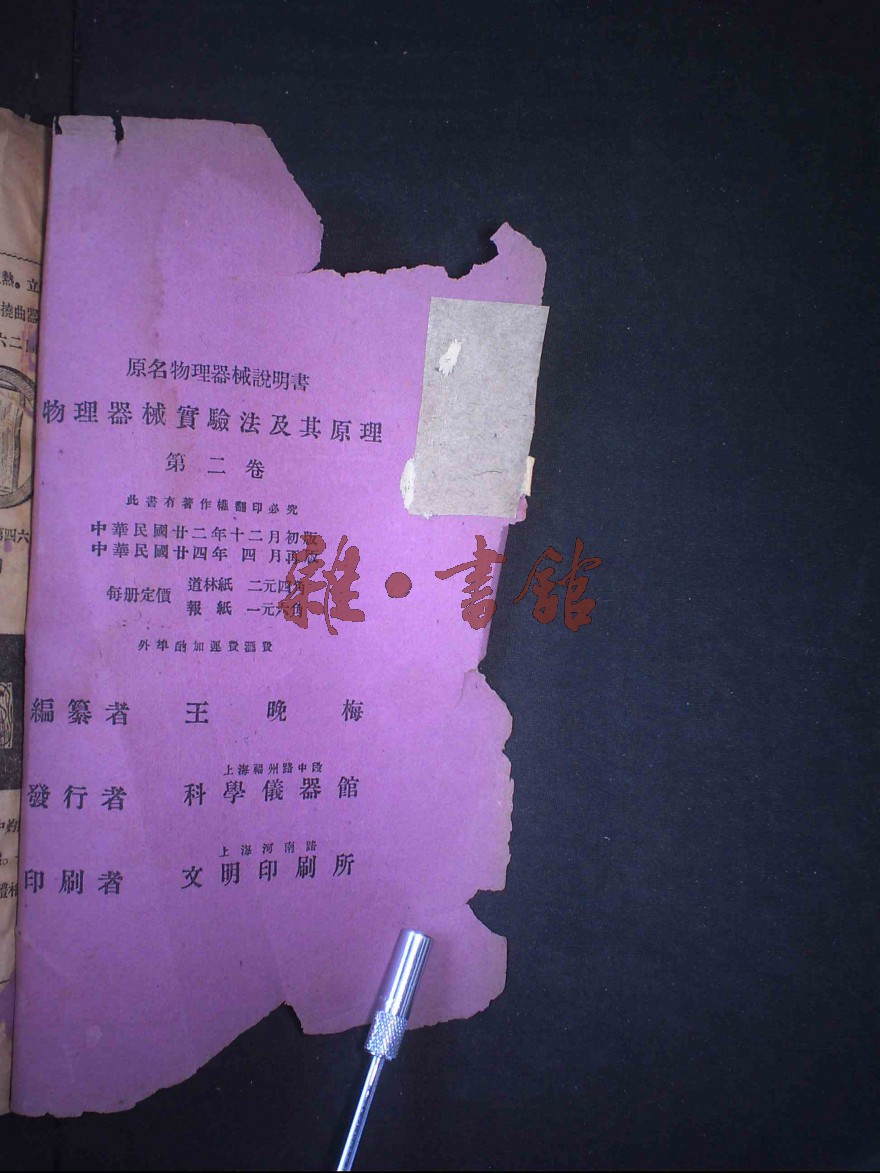 原名物理器械說明書
物理器械實驗法及其原理
第二卷
此書有著作權翻印必究
中華民國廿二年十二月初版
中華民國廿四年 四月再版
每册定價 道林紙 二元四角
報紙 一元六角
外埠酌加運費滙費
編纂者 王晚梅
上海福州路中段
發行者 科學儀器館
上海河南路
印刷者 文明印刷所
雜·書館
熱。立
撓曲器
六二
第四六